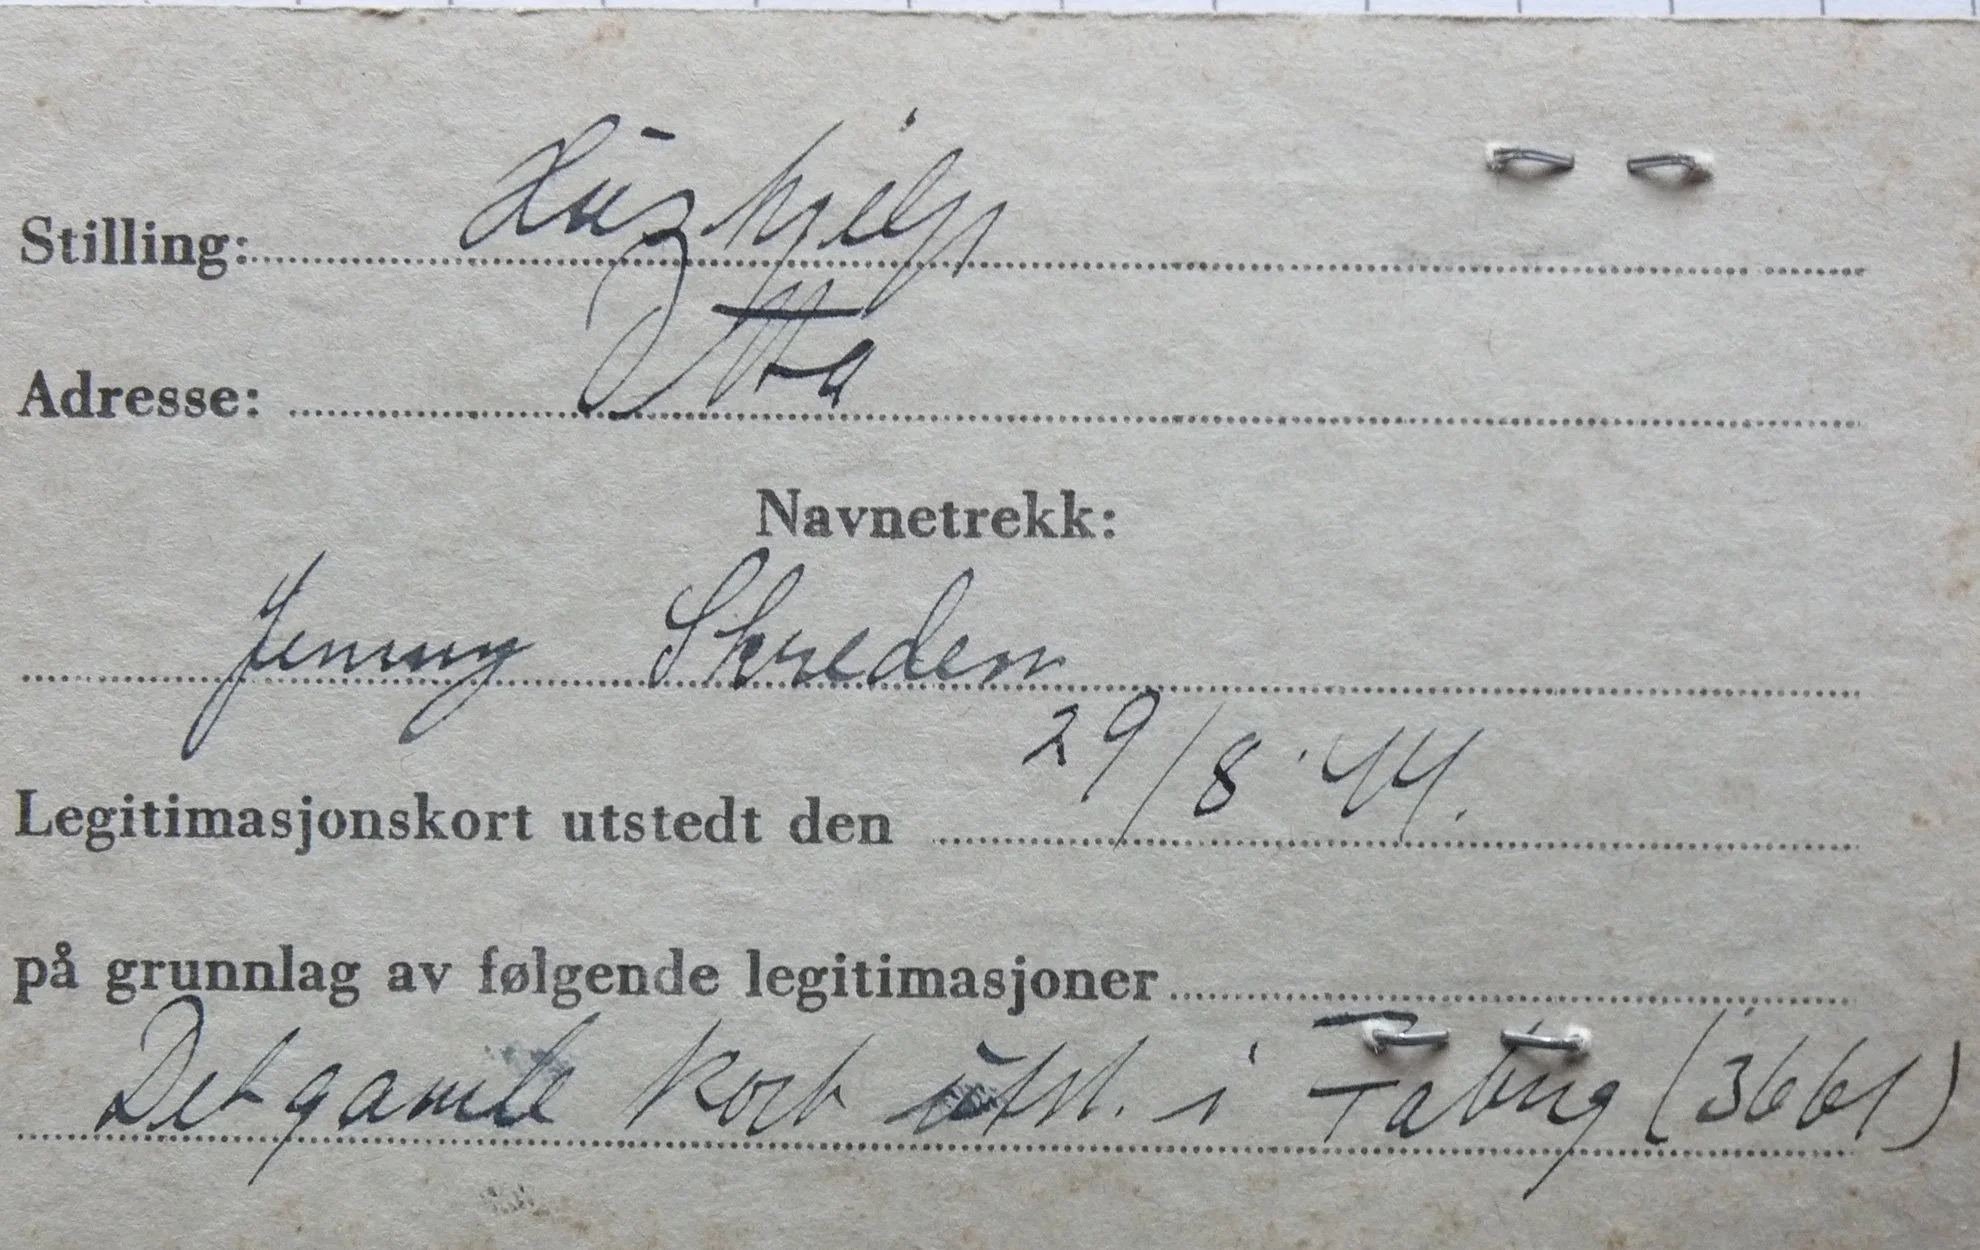 Stilling: Hushjelp
Adresse: Otta
Navnetrekk:
Jenny Skreden
Legitimasjonskort utstedt den 29/8 '44.
på grunnlag av følgende legitimasjoner
Det gamle kort utst. i Fåbrg (3661)